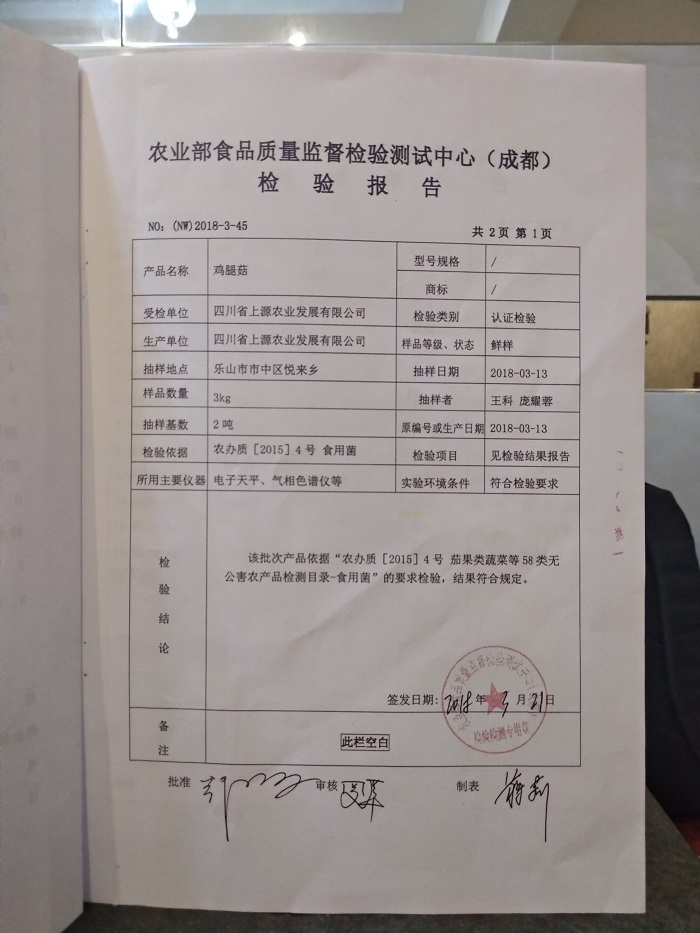 农业部食品质量监督检验测试中心（成都）
检 验 报 告
NO：(NW)2018-3-45
共 2页 第 1页
产品名称 鸡腿菇 型号规格 /
商标 /
受检单位 四川省上源农业发展有限公司 检验类别 认证检验
生产单位 四川省上源农业发展有限公司 样品等级、状态 鲜样
抽样地点 乐山市市中区悦来乡 抽样日期 2018-03-13
样品数量 3kg 抽样者 王科 庞耀蓉
抽样基数 2 吨 原编号或生产日期 2018-03-13
检验依据 农办质［2015］4 号 食用菌 检验项目 见检验结果报告
所用主要仪器 电子天平、气相色谱仪等 实验环境条件 符合检验要求
检验结论
该批次产品依据“农办质［2015］4 号 茄果类蔬菜等 58 类无
公害农产品检测目录-食用菌”的要求检验，结果符合规定。
签发日期: 2018 年 3 月 21 日
备注
此栏空白
批准 审核 制表